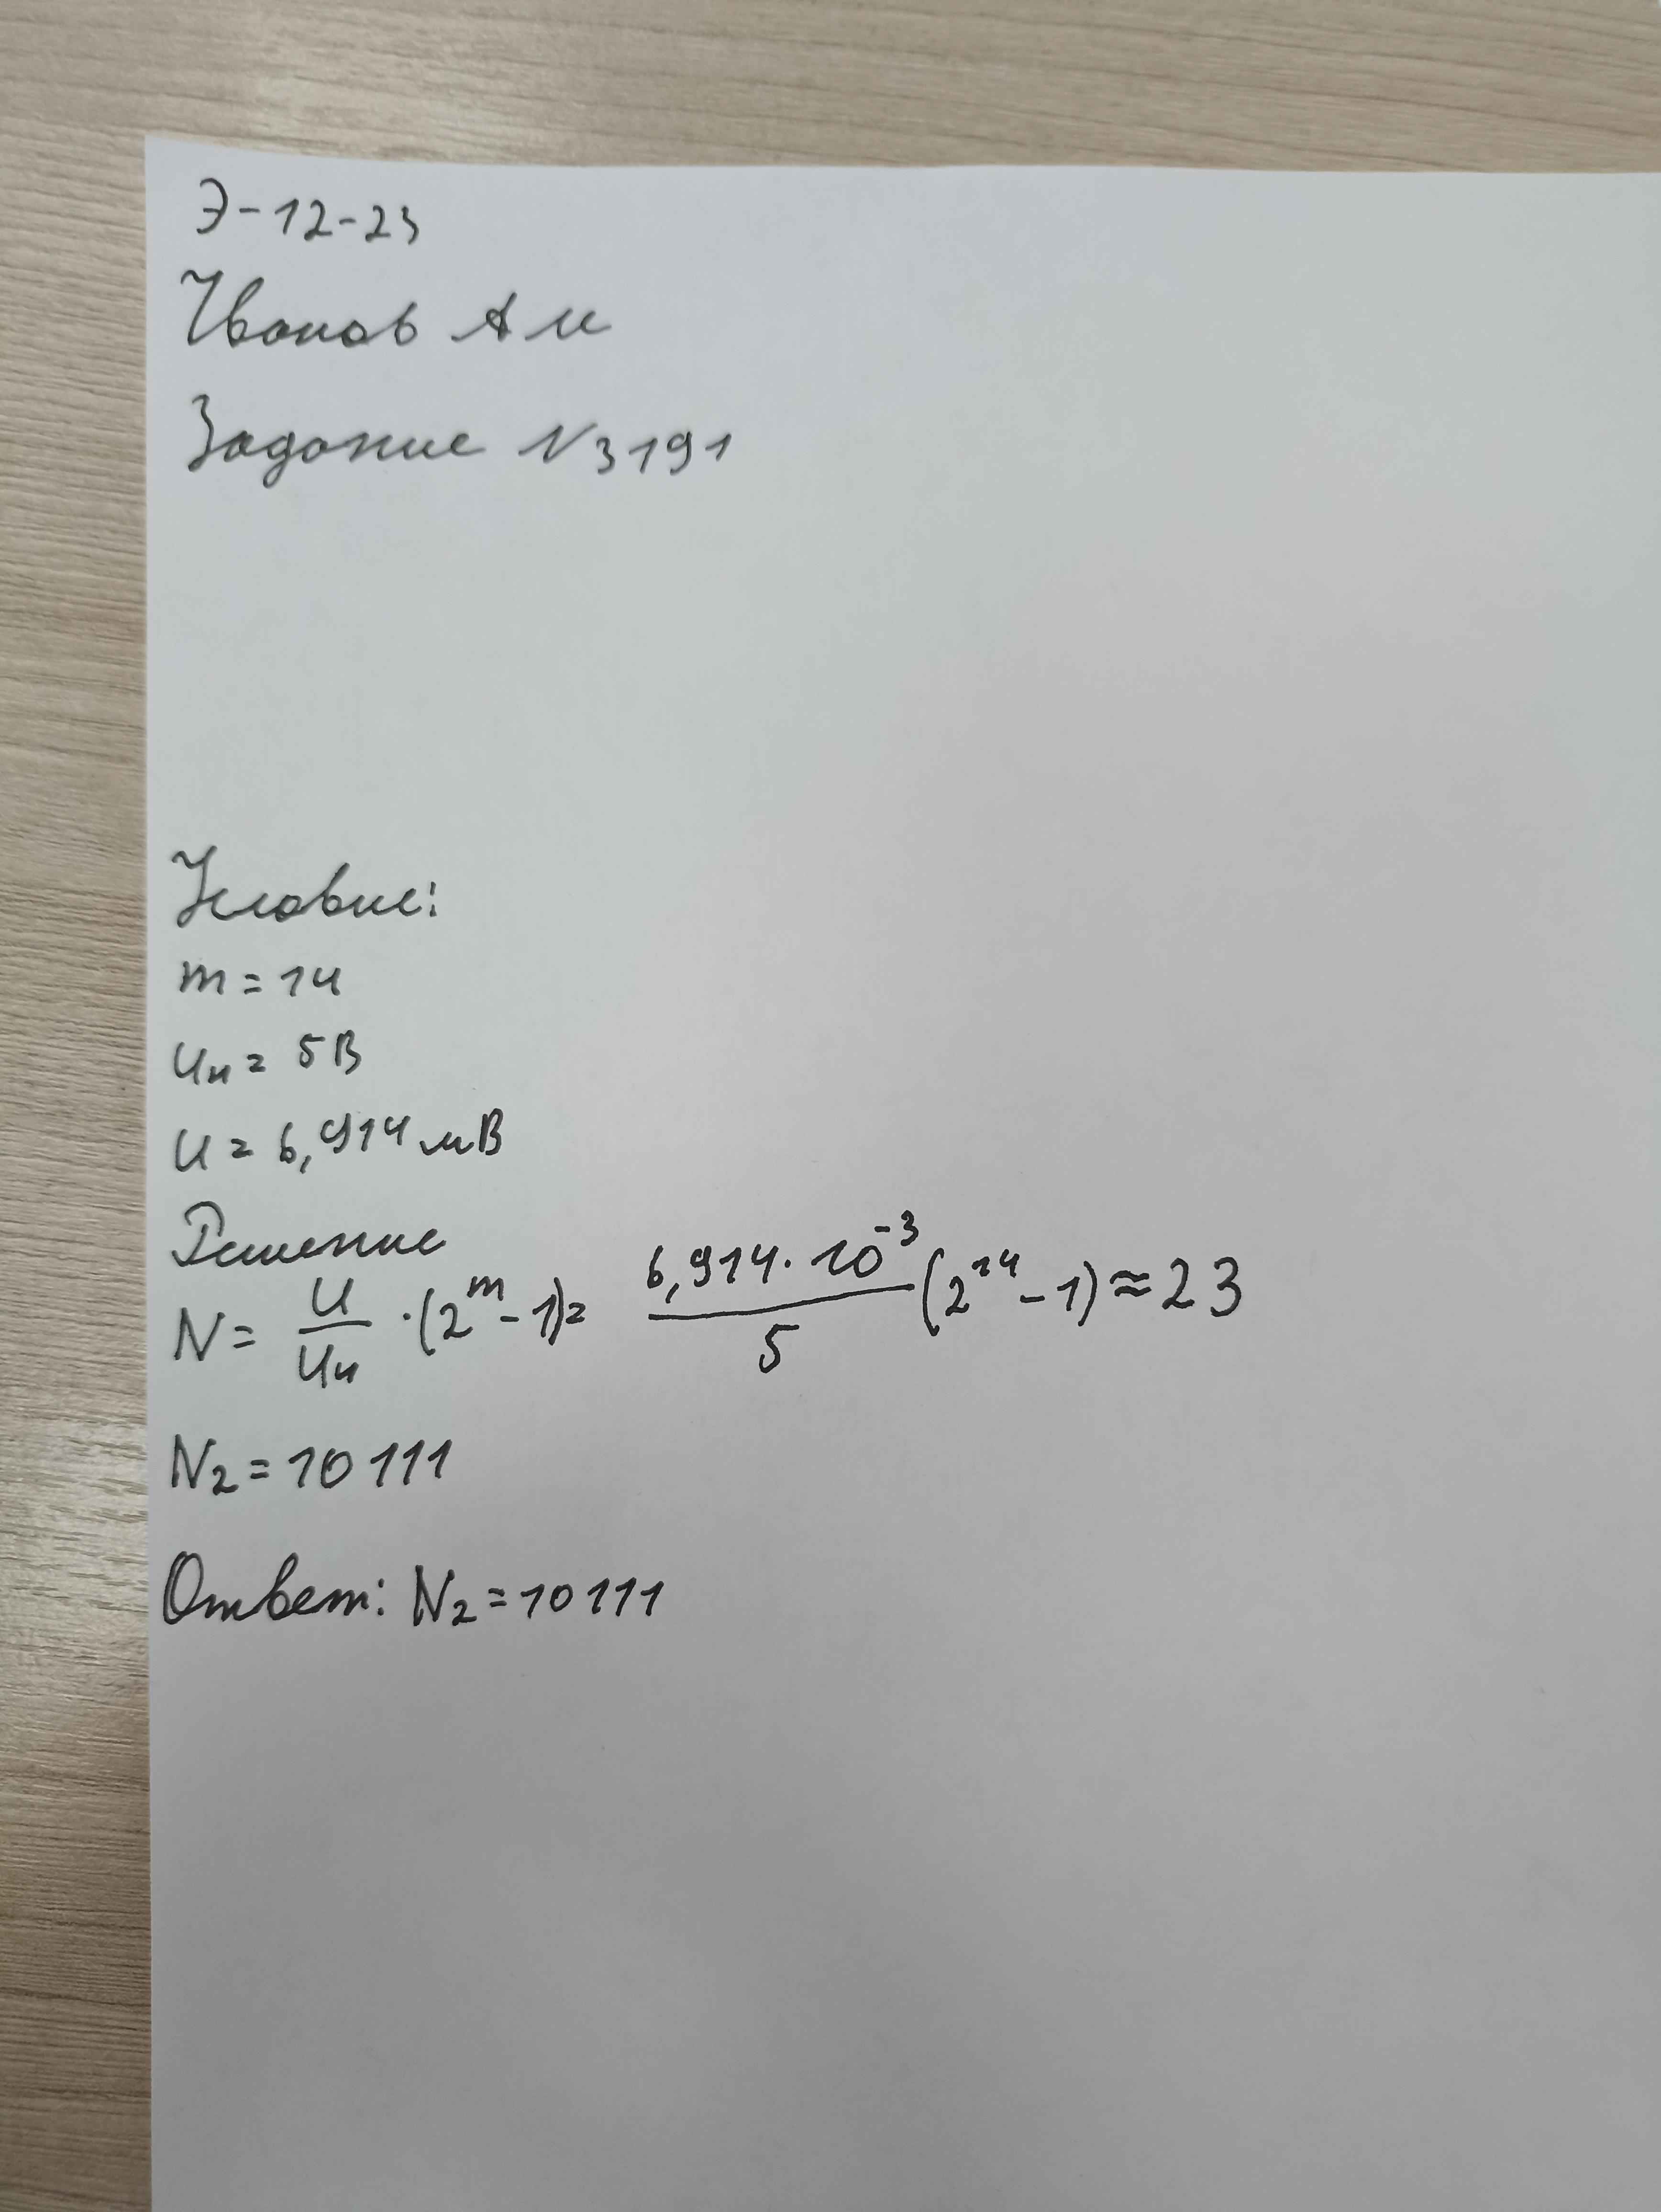 Э-12-23
Иванов А И
Задание №3191
Условие:
m = 14
Uн = 5В
U = 6,914 мВ
Решение
N = U/Uн · (2^m - 1) = 6,914 · 10^-3 / 5 (2^14 - 1) ≈ 23
N2 = 10111
Ответ: N2 = 10111